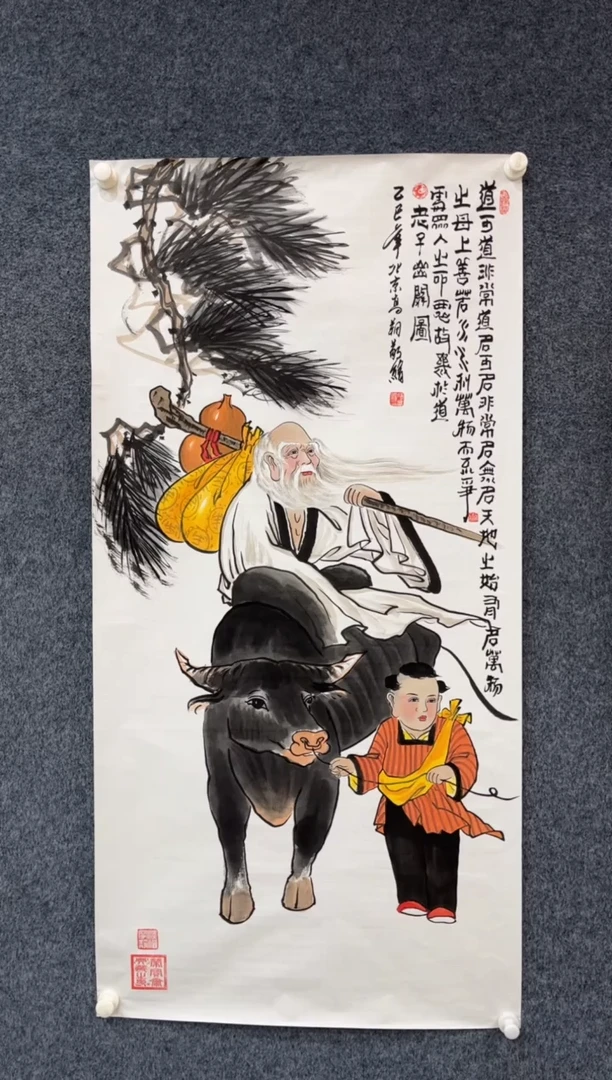 道可道非常道名可名非常名無名天地之始有名萬物
之母上善若水善利萬物而不爭
處眾人之所惡故幾於道
老子出關圖
乙巳年北京高翔敬繪